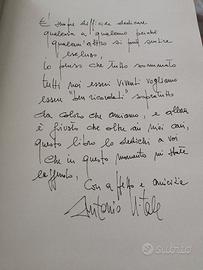 È troppo difficile dedicare
qualcosa a qualcuno perché
qualcun'altro si può sentire
escluso.
Io penso che tutto sommato
tutti noi esseri viventi vogliamo
esser "ben ricordati" soprattutto
da coloro che amiamo, e allora
è giusto che oltre ai miei cari,
questo libro lo dedichi a voi
che in questo momento mi state
leggendo.
Con affetto e amicizia
Antonio Vitale
subito